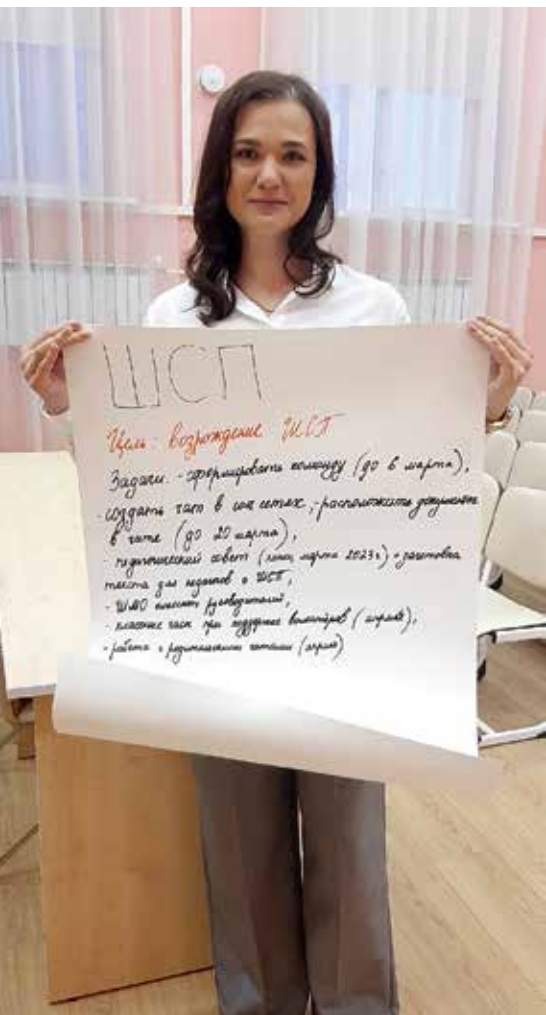 ШСП
Цель: возрождение ШСП
Задачи: - сформировать команду (до 6 марта),
- создать чат в соц сетях, - расположить документы
в чате (до 20 марта),
- педагогический совет (конец марта 2023г) - заготовка
текста для педагогов о ШСП,
- ШМО классных руководителей,
- классные часы при поддержке волонтёров (апрель),
- работа с родительскими чатами (апрель)